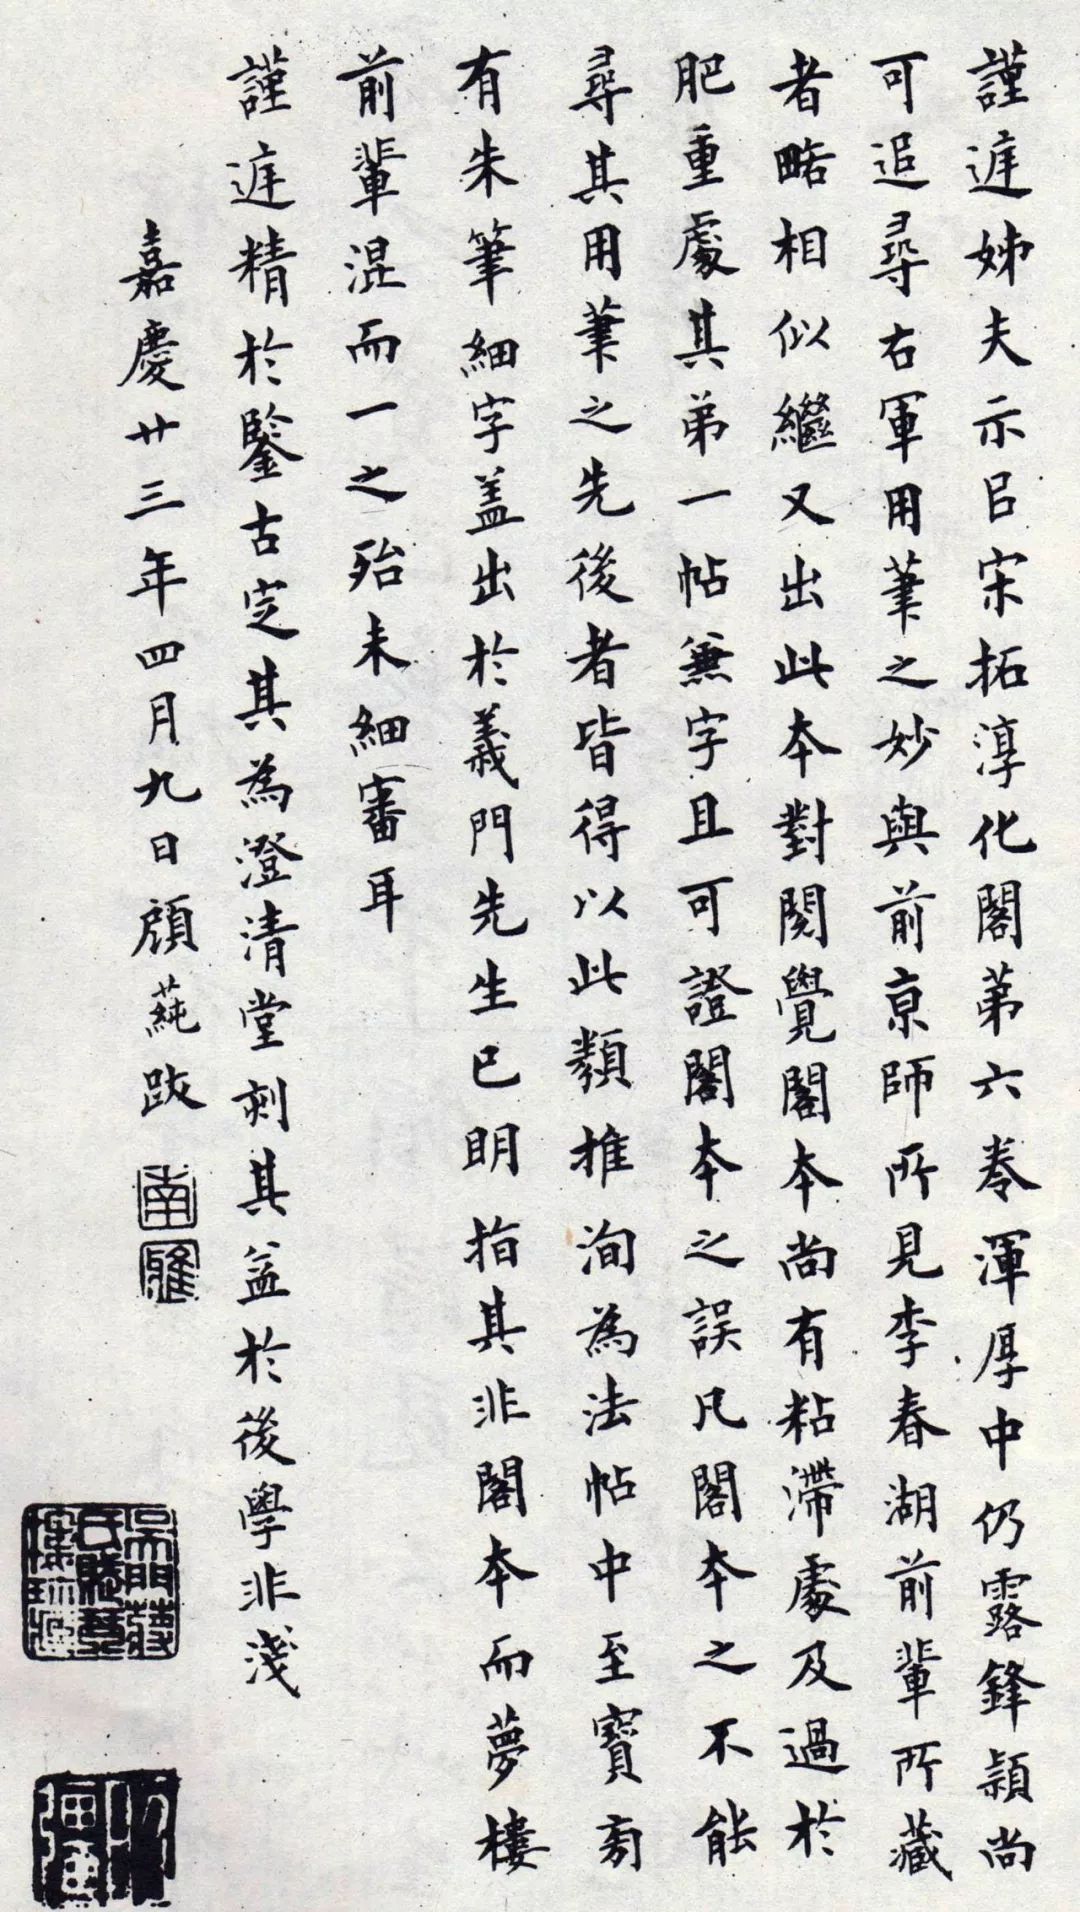 謹庭姊夫示㠯宋拓淳化閣苐六卷渾厚中仍露鋒穎尚
可追尋右軍用筆之妙與前京師所見李春湖前輩所藏
者略相似繼又出此本對閱覺閣本尚有粘滯處及過於
肥重處其弟一帖無字且可證閣本之誤凡閣本之不能
尋其用筆之先後者皆得以此類推洵為法帖中至寶旁
有朱筆細字盖出於義門先生已明指其非閣本而夢樓
前輩混而一之殆未細審耳
謹庭精於鑒古定其為澄清堂刻其益於後學非淺
嘉慶廿三年四月九日顧蒓跋
南雅